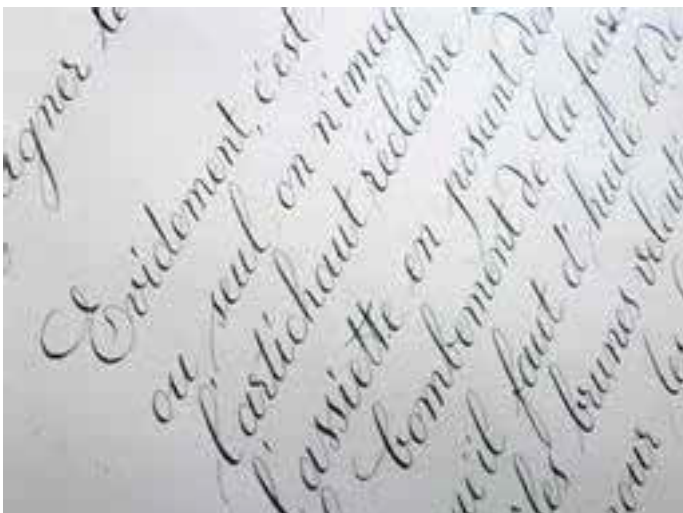 Evidemment, c'est
ou seul on n'imag
l'artichaut réclame
l'assiette en posant de
bombement de la four
u'il faut d'huile et de
les brunes velouté
pour les